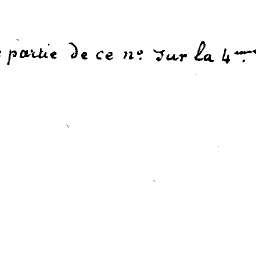 partie de ce nº sur la 4me